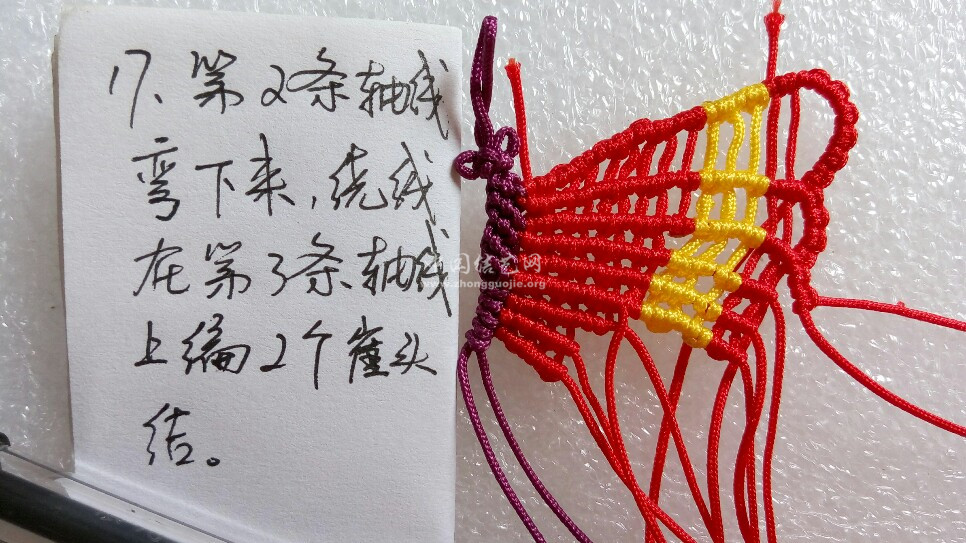 17、第2条轴线
弯下来，绕线
在第3条轴线
上编2个雀头
结。
中国结艺网
www.zhongguojie.org